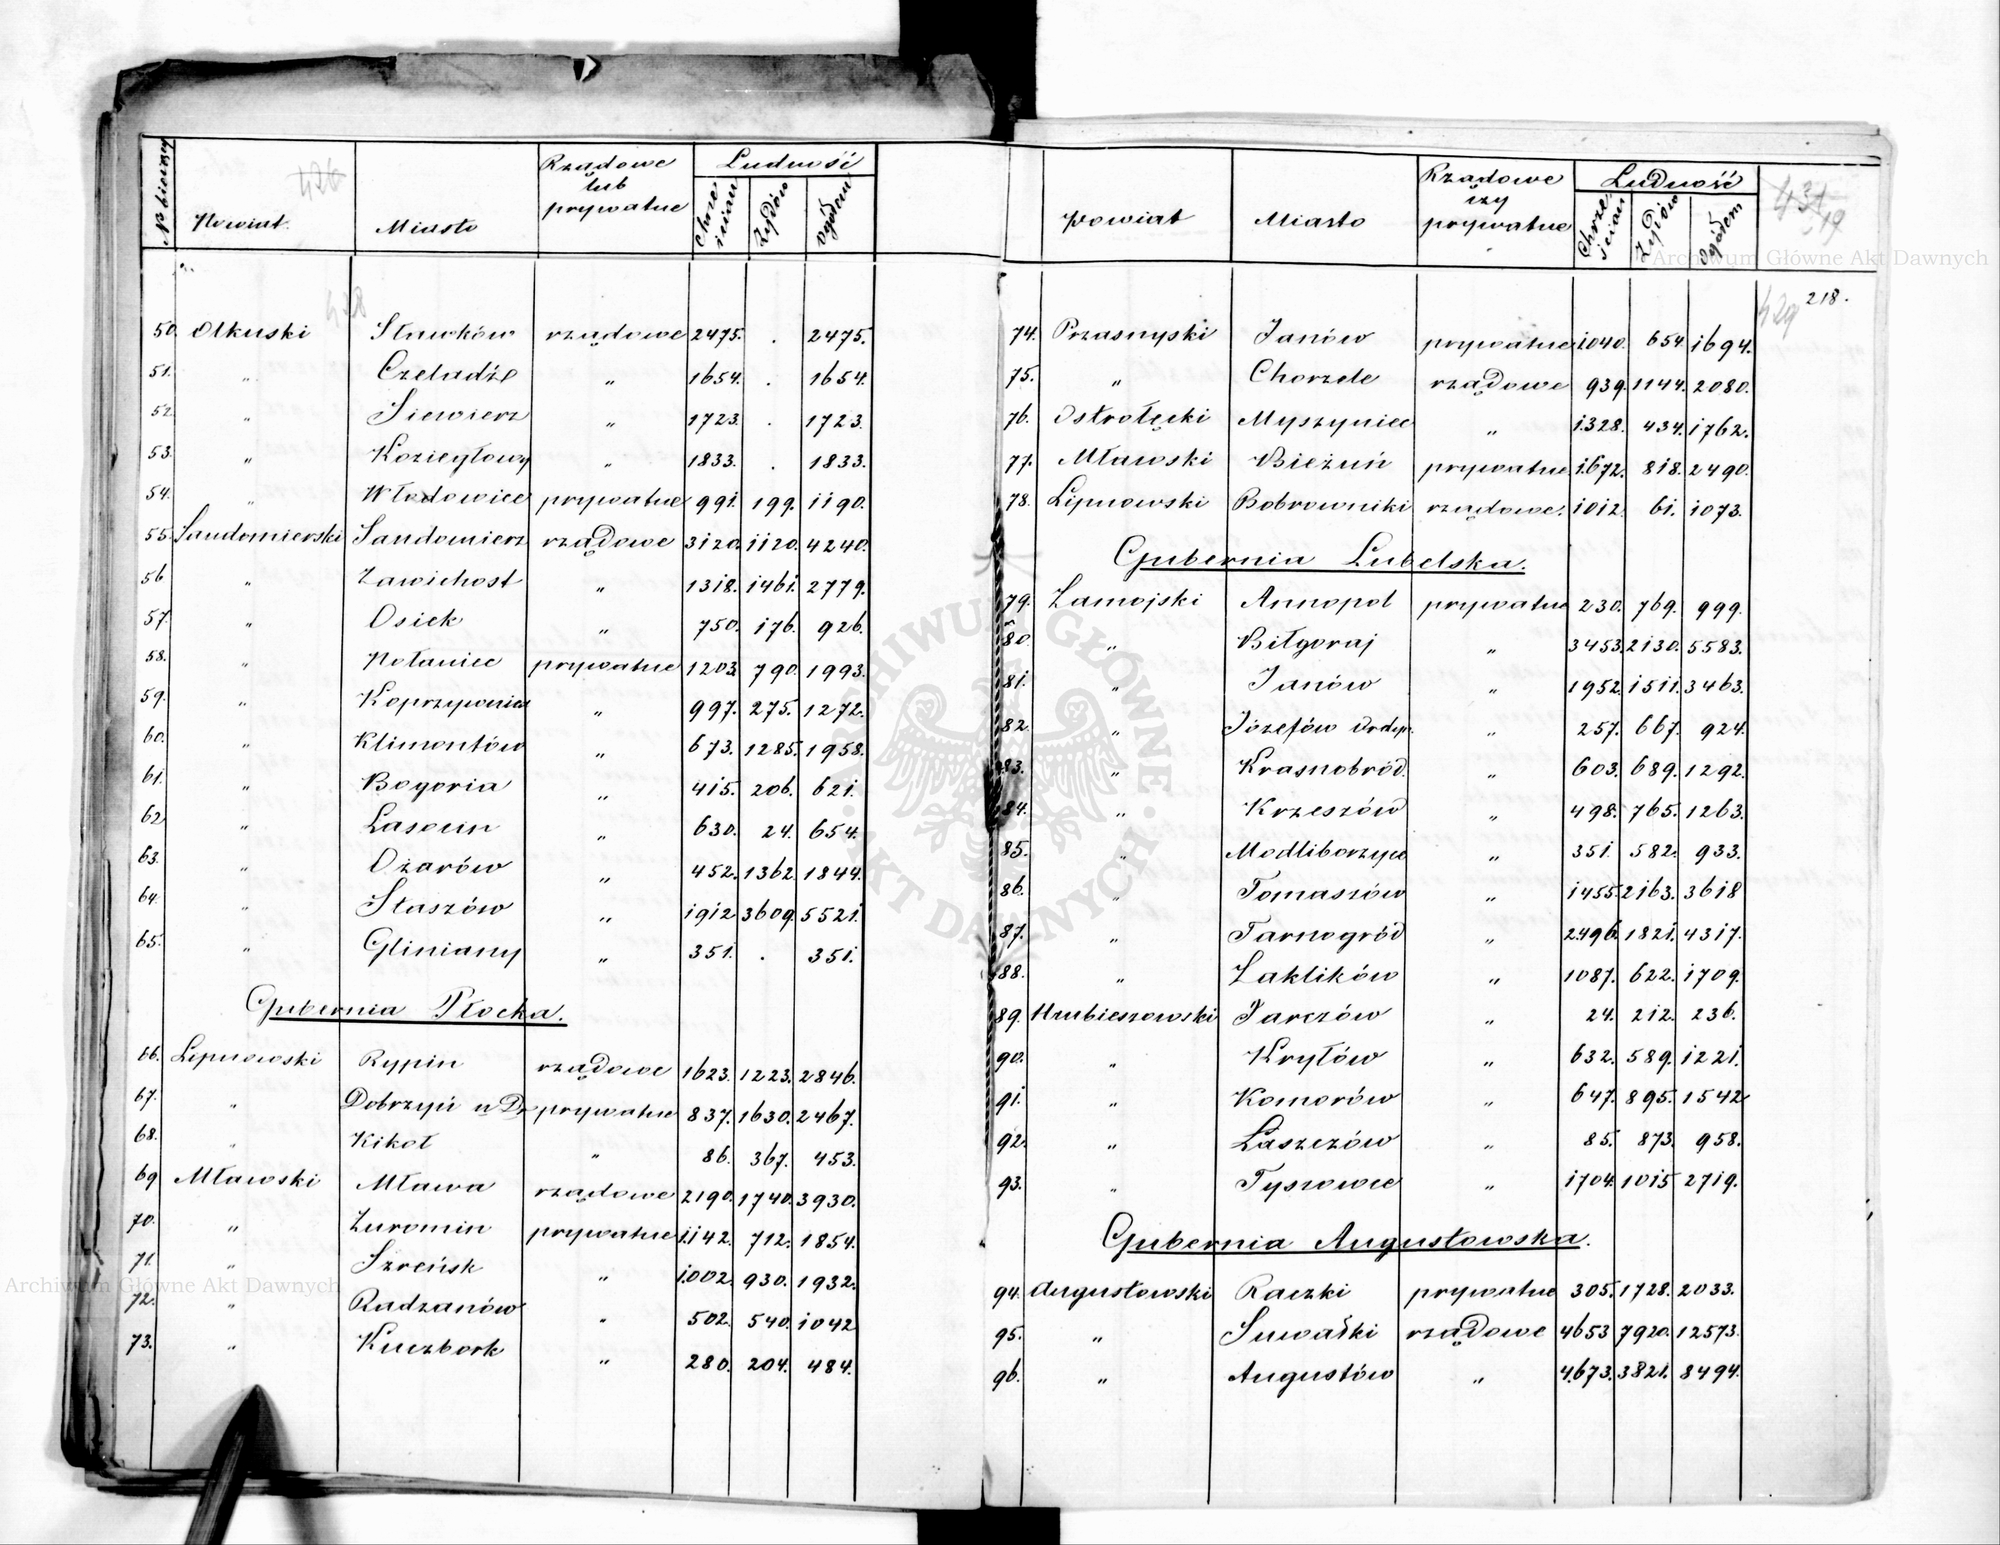 № bieżący Powiat. Miasto Rządowe lub prywatne Ludność Chrześcian Żydów Ogółem
426
428
50. Olkuski Sławków rządowe 2475. . 2475.
51. „ Czeladź „ 1654. . 1654.
52. „ Siewierz „ 1723. . 1723.
53. „ Koziegłowy „ 1833. . 1833.
54. „ Włodowice prywatne 991. 199. 1190.
55. Sandomierski Sandomierz rządowe 3120. 1120. 4240.
56 „ Zawichost „ 1318. 1461. 2779.
57. „ Osiek „ 750. 176. 926.
58. „ Połaniec prywatne 1203. 790. 1993.
59. „ Koprzywnica „ 997. 275. 1272.
60. „ Klimontów „ 673. 1285. 1958.
61. „ Bogoria „ 415. 206. 621.
62. „ Lasocin „ 630. 24. 654.
63. „ Ożarów „ 452. 1362. 1844.
64. „ Staszów „ 1912 3609. 5521.
65. „ Gliniany „ 351. . 351.
Gubernia Płocka.
66. Lipnowski Rypin rządowe 1623. 1223. 2846.
67. „ Dobrzyń n Dr prywatne 837. 1630. 2467.
68. „ Kikoł „ 86. 367. 453.
69 Mławski Mława rządowe 2190. 1740. 3930.
70. „ Żuromin prywatne 1.142. 712. 1854.
71. „ Szreńsk „ 1.002. 930. 1932.
72. „ Radzanów „ 502. 540. 1042
73. „ Kuczbork „ 280. 204. 484.
Powiat Miasto Rządowe czy prywatne Ludność Chrześcian Żydów Ogółem
431
19
218.
429
74. Przasnyski Janów prywatne 1040. 654. 1694.
75. „ Chorzele rządowe 939. 1144. 2080.
76. Ostrołęcki Myszyniec „ 1.328. 434. 1762.
77. Mławski Bieżuń prywatne 1.672. 818. 2490.
78. Lipnowski Bobrowniki rządowe. 1012. 61. 1073.
Gubernia Lubelska.
79. Zamojski Annopol prywatne 230. 769. 999.
80. „ Biłgoraj „ 3453. 2130. 5583.
81. „ Janów „ 1952. 1511. 3463.
82. „ Józefów Ordyn. „ 257. 667. 924.
83. „ Krasnobród. „ 603. 689. 1292.
84. „ Krzeszów „ 498. 765. 1263.
85. „ Modliborzyce „ 351. 582. 933.
86. „ Tomaszów „ 1455. 2163. 3618
87. „ Tarnogród „ 2496. 1821. 4317.
88. „ Zaklików „ 1087. 622. 1709.
89. Hrubieszowski Jarczów „ 24. 212. 236.
90. „ Kryłów „ 632. 589. 1221.
91. „ Komorów „ 647. 895. 1542
92. „ Łaszczów „ 85. 873. 958.
93. „ Tyszowce „ 1704. 1015 2719.
Gubernia Augustowska.
94. Augustowski Raczki prywatne 305. 1728. 2033.
95. „ Suwałki rządowe 4653 7920. 12573.
96. „ Augustów „ 4.673. 3821. 8494.
Archiwum Główne Akt Dawnych
Archiwum Główne Akt Dawnych
ARCHIWUM GŁÓWNE · AKT DAWNYCH ·